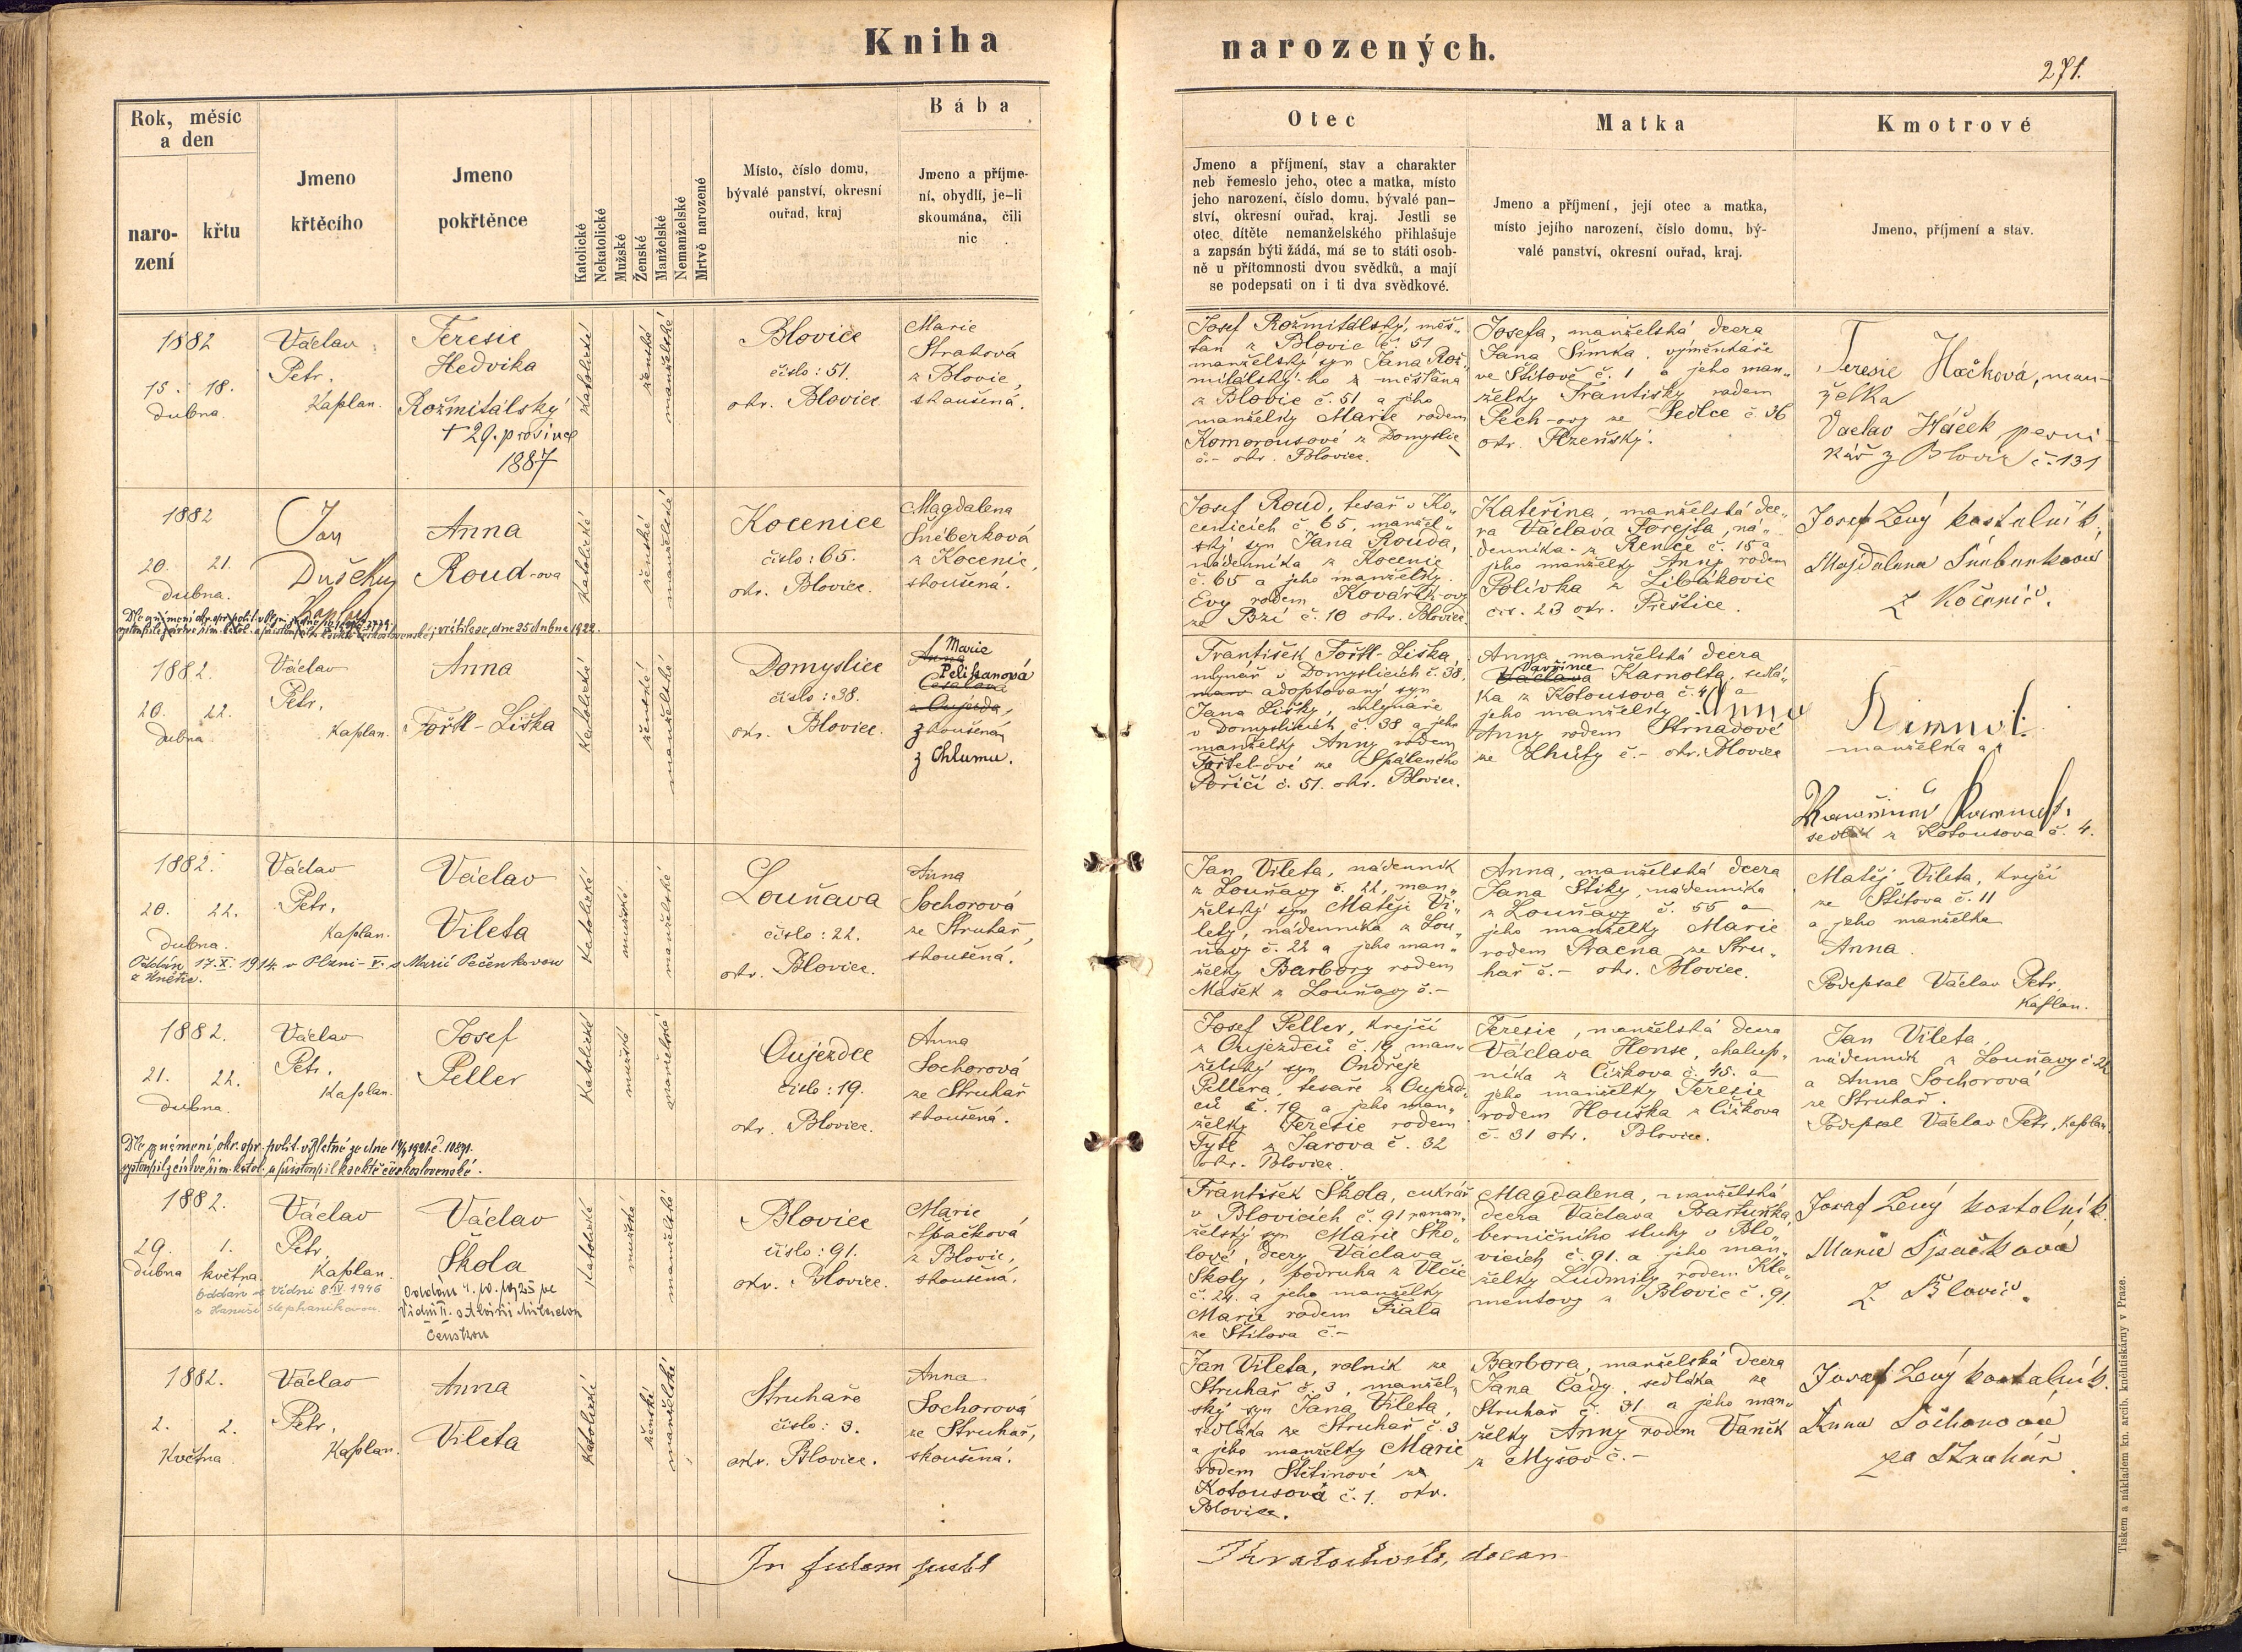 Kniha
narozených.
271.
Rok, měsíc
a den
naro-
zení
křtu
Jmeno
křtěcího
Jmeno
pokřtěnce
Katolické
Nekatolické
Mužské
Ženské
Manželské
Nemanželské
Mrtvě narozené
Místo, číslo domu,
bývalé panství, okresní
ouřad, kraj
Bába
Jmeno a příjme-
ní, obydlí, je-li
skoumána, čili
nic
Otec
Jmeno a příjmení, stav a charakter
neb řemeslo jeho, otec a matka, místo
jeho narození, číslo domu, bývalé pan-
ství, okresní ouřad, kraj. Jestli se
otec dítěte nemanželského přihlašuje
a zapsán býti žádá, má se to státi osob-
ně u přítomnosti dvou svědků, a mají
se podepsati on i ti dva svědkové.
Matka
Jmeno a příjmení, její otec a matka,
místo jejího narození, číslo domu, bý-
valé panství, okresní ouřad, kraj.
Kmotrové
Jmeno, příjmení a stav.
1882
15. 18.
Dubna.
Václav
Petr.
Kaplan.
Teresie
Hedvika
Rožmitálský
† 29. prosince
1887
katolické
ženské
manželské
Blovice
číslo: 51.
okr. Blovice
Marie
Straková
z Blovic,
skoušená.
Josef Rožmitálský, měš„
ťan z Blovic č. 51
manželský syn Jana Rož„
mitálský-ho z měšťana
z Blovic č. 51 a jeho
manželky Marie rodem
Komorousové z Domyslic
č.- okr. Blovice.
Josefa, manželská dcera
Jana Šimka, výměnkáře
ve Štítově č. 1 a jeho man„
želky Františky rodem
Pech-ovy ze Sedlce č. 36
okr. Plzeňský.
Teresie Háčková, man-
želka
Václav Háček, perni-
kář z Blovic č. 131
1882
20. 21.
Dubna.
Jan
Dušek
Kaplan
Anna
Roud-ova
katolické
ženské
manželské
Kocenice
číslo: 65.
okr. Blovice.
Magdalena
Šnéberková
z Kocenic,
skoušená.
Josef Roud, tesař v Ko„
cenicích č. 65, manžel„
ský syn Jana Rouda,
nádenníka z Kocenic
č. 65 a jeho manželky
Evy rodem Kovářík-ovy
ze Bzí č. 10 okr. Blovice.
Kateřina, manželská dce„
ra Václava Forejta, ná„
denníka z Renče č. 15 a
jeho manželky Anny rodem
Polívka z Libákovic
čís. 23 okr. Přeštice.
Josef Levý kostelník,
Magdalena Šnéberková
z Kocenic.
vrátila se, dne 25 dubna 1922.
1882.
20. 22.
Dubna
Václav
Petr,
Kaplan.
Anna
Fořtl-Liška
katolické
ženské
manželské
Domyslice
číslo: 38.
okr. Blovice.
Marie
Anna
Pelikanová
z Oujezda,
zkoušená
z Chlumu.
František Fořtl-Liška,
mlynář v Domyslicích č. 38,
adoptovaný syn
Jana Lišky, mlynáře
v Domyslicích č. 38 a jeho
manželky Anny rodem
Fořtel-ové ze Spáleného
Poříčí č. 51. okr. Blovice.
Anna, manželská dcera
Vavřince
Václava Karnolta, sedlá„
ka z Kotousova č. 4 a
jeho manželky
Anny rodem Strnadové
ze Lhůty č.- okr. Blovice
Anna
manželka a
sedlák z Kotousova č. 4.
1882.
20. 22.
Dubna.
Václav
Petr,
Kaplan.
Václav
Vileta
katolické
mužské
manželské
Louňava
číslo: 22.
okr. Blovice.
Anna
Sochorová
ze Struhař,
skoušená.
Jan Vileta, nádenník
z Louňavy č. 22, man„
želský syn Matěje Vi„
lety, nádenníka z Lou„
ňavy č. 22 a jeho man„
želky Barbory rodem
Mašek z Louňavy č.-
Anna, manželská dcera
Jana Štiky, nádenníka
z Louňavy č. 55 a
jeho manželky Marie
rodem Pracna ze Stru„
hař č.- okr. Blovice.
Matěj Vileta, krejčí
ze Štítova č. 11
a jeho manželka
Anna.
Podepsal Václav Petr,
Kaplan.
Oddán 17.X. 1914 v Plzni-V. s Marií Pečenkovou
z Kněžic.
1882.
21. 22.
Dubna.
Václav
Petr.
Kaplan.
Josef
Peller
katolické
mužské
manželské
Oujezdce
číslo: 19.
okr. Blovice.
Anna
Sochorová
ze Struhař
skoušená.
Josef Peller, krejčí
z Oujezdců č. 19 man„
želský syn Ondřeje
Pellera, tesaře z Oujezd„
ců č. 19 a jeho man„
želky Teresie rodem
Tytl z Jarova č. 32
okr. Blovice.
Teresie, manželská dcera
Václava Honse, chalup„
níka z Čížkova č. 45. a
jeho manželky Teresie
rodem Houška z Čížkova
č. 31 okr. Blovice.
Jan Vileta,
nádenník z Louňavy č 22
a Anna Sochorová
ze Struhař.
Podepsal Václav Petr, Kaplan.
vystoupil z církve řím. katol. a přistoupil k sektě československé.
1882.
29. 1.
dubna května
Václav
Petr,
Kaplan.
Václav
Škola
katolické
mužské
manželské
Blovice
číslo: 91.
okr. Blovice.
Marie
Špačková
z Blovic,
skoušená.
František Škola, cukrář
v Blovicích č. 91, neman„
želský syn Marie Ško„
lové, dcery Václava
Školy, podruha z Vlčic
č. 24. a jeho manželky
Marie rodem Fiala
ze Štítova č.-
Magdalena, manželská
dcera Václava Bartuňka,
berničního sluhy v Blo„
vicích č. 91. a jeho man„
želky Ludmily rodem Kle„
mentovy z Blovic č. 91.
Josef Levý kostelník.
Marie Špačková
z Blovic.
Oddán ve Vídni 8.IV. 1946
1882.
2. 2.
Května
Václav
Petr,
Kaplan.
Anna
Vileta
katolické
ženské
manželské
Struhaře
číslo: 3.
okr. Blovice.
Anna
Sochorova
ze Struhař,
skoušená.
Jan Vileta, rolník ze
Struhař č. 3, manžel„
ský syn Jana Vileta,
sedláka ze Struhař č. 3
a jeho manželky Marie
rodem Štětinové z
Kotousova č. 1. okr.
Blovice.
Barbora, manželská dcera
Jana Čády, sedláka ze
Struhař č. 31. a jeho man„
želky Anny rodem Vaněk
z Myšov č.-
Josef Levý kostelník.
Anna Sochorová
ze Struhař.
In fidem
Tiskem a nákladem kn. arcib. knihtiskárny v Praze.